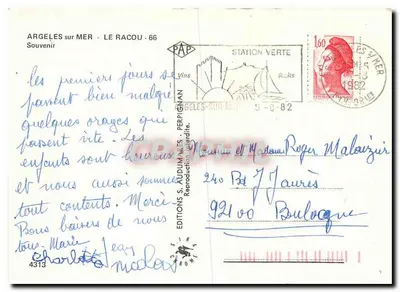 ARGELES sur MER - LE RACOU - 66
Souvenir
PAP
STATION VERTE
1,60
9-8-82
1982
les premiers jours se
passent bien malgré
quelques orages qui
passent vite. Les
enfants sont heureux
et nous aussi sommes
tout contents. Merci
Bons baisers de nous
tous. Marie
Charlotte
Jean
Nicolas
EDITIONS S. - PERPIGNAN
Reproduction interdite.
Monsieur et Madame Roger Malaizier
240 Bd J Jaurès
92100 Boulogne
4313